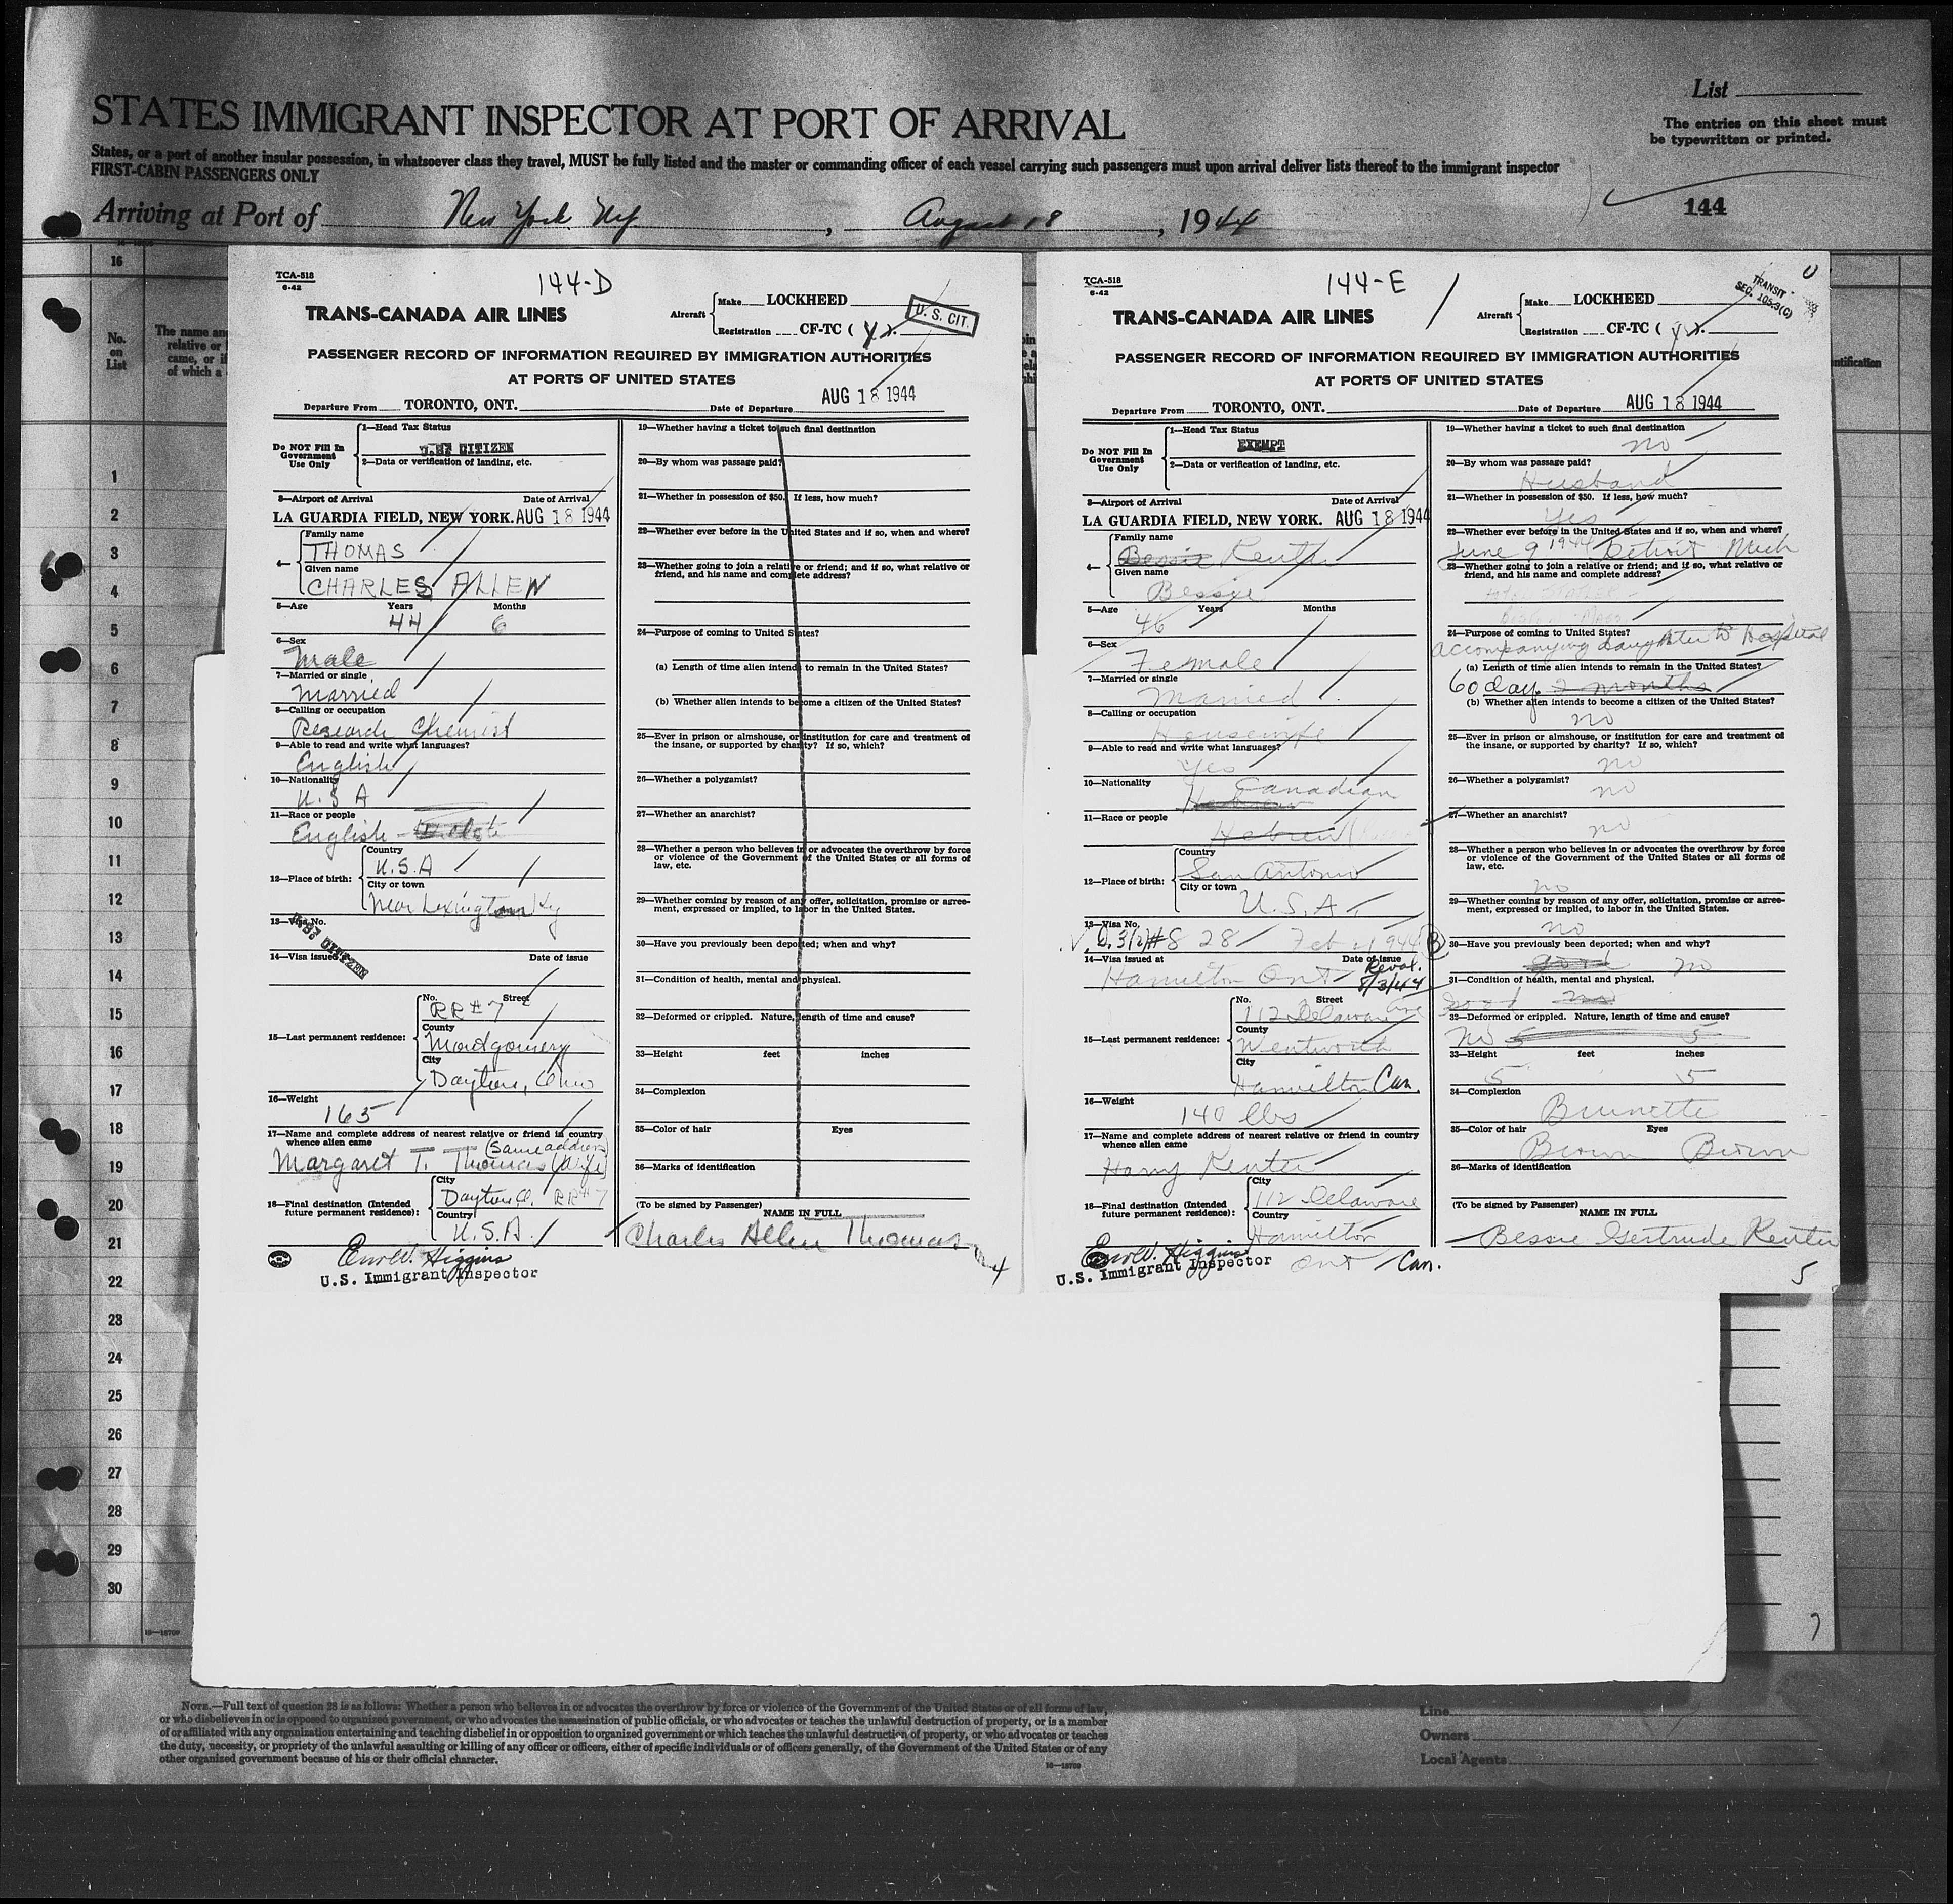 List
STATES IMMIGRANT INSPECTOR AT PORT OF ARRIVAL
The entries on this sheet must
be typewritten or printed.
States, or a port of another insular possession, in whatsoever class they travel, MUST be fully listed and the master or commanding officer of each vessel carrying such passengers must upon arrival deliver lists thereof to the immigrant inspector
FIRST-CABIN PASSENGERS ONLY
Arriving at Port of New York Ny, August 18, 1944
144
16
No.
on
List
The name and
relative or
came, or if
of which a
1
2
3
4
5
6
7
8
9
10
11
12
13
14
15
16
17
18
19
20
21
22
23
24
25
26
27
28
29
30
16—18709
TCA-518
6-42
144-D
TRANS-CANADA AIR LINES
Aircraft
Make LOCKHEED
Registration CF-TC (Y).
U. S. CIT.
PASSENGER RECORD OF INFORMATION REQUIRED BY IMMIGRATION AUTHORITIES
AT PORTS OF UNITED STATES
AUG 18 1944
Departure From TORONTO, ONT. Date of Departure
Do NOT Fill In
Government
Use Only
1—Head Tax Status
U.S. CITIZEN
2—Data or verification of landing, etc.
3—Airport of Arrival Date of Arrival
LA GUARDIA FIELD, NEW YORK. AUG 18 1944
4—
Family name
THOMAS
Given name
CHARLES ALLEN
5—Age Years Months
44 6
6—Sex
Male
7—Married or single
Married
8—Calling or occupation
Research Chemist
9—Able to read and write what languages?
English
10—Nationality
U.S A
11—Race or people
English
12—Place of birth:
Country
U.S.A
City or town
Near Lexington Ky
13—Visa No.
CITIZEN
14—Visa issued Date of issue
15—Last permanent residence:
No. Street
RR#7
County
Montgomery
City
Dayton, Ohio
16—Weight
165
17—Name and complete address of nearest relative or friend in country
whence alien came
(Same address)
Margaret T. Thomas (Wife)
18—Final destination (Intended
future permanent residence):
City
Dayton O. RR#7
Country
U.S.A.
Errol W. Higgins
U.S. Immigrant Inspector
19—Whether having a ticket to such final destination
20—By whom was passage paid?
21—Whether in possession of $50. If less, how much?
22—Whether ever before in the United States and if so, when and where?
23—Whether going to join a relative or friend; and if so, what relative or
friend, and his name and complete address?
24—Purpose of coming to United States?
(a) Length of time alien intends to remain in the United States?
(b) Whether alien intends to become a citizen of the United States?
25—Ever in prison or almshouse, or institution for care and treatment of
the insane, or supported by charity? If so, which?
26—Whether a polygamist?
27—Whether an anarchist?
28—Whether a person who believes in or advocates the overthrow by force
or violence of the Government of the United States or all forms of
law, etc.
29—Whether coming by reason of any offer, solicitation, promise or agree-
ment, expressed or implied, to labor in the United States.
30—Have you previously been deported; when and why?
31—Condition of health, mental and physical.
32—Deformed or crippled. Nature, length of time and cause?
33—Height feet inches
34—Complexion
35—Color of hair Eyes
36—Marks of identification
(To be signed by Passenger)
NAME IN FULL
Charles Allen Thomas
4
TCA-518
6-42
144-E
TRANS-CANADA AIR LINES
Aircraft
Make LOCKHEED
Registration CF-TC (Y).
TRANSIT
SEC. 105.3(C)
PASSENGER RECORD OF INFORMATION REQUIRED BY IMMIGRATION AUTHORITIES
AT PORTS OF UNITED STATES
AUG 18 1944
Departure From TORONTO, ONT. Date of Departure
Do NOT Fill In
Government
Use Only
1—Head Tax Status
EXEMPT
2—Data or verification of landing, etc.
3—Airport of Arrival Date of Arrival
LA GUARDIA FIELD, NEW YORK. AUG 18 1944
4—
Family name
Bessie Kenter
Given name
Bessie
5—Age Years Months
46
6—Sex
Female
7—Married or single
Married
8—Calling or occupation
Housewife
9—Able to read and write what languages?
Yes
10—Nationality
Canadian
Hebrew
11—Race or people
Hebrew
12—Place of birth:
Country
San Antonio
City or town
U.S.A.
13—Visa No.
3(2)#828 Feb 1944
14—Visa issued at Date of issue
Hamilton Ont Reval. 8/3/44
15—Last permanent residence:
No. Street
112 Delaware Ave
County
Wentworth
City
Hamilton Can.
16—Weight
140 lbs
17—Name and complete address of nearest relative or friend in country
whence alien came
Harry Kenter
18—Final destination (Intended
future permanent residence):
City
112 Delaware
Country
Hamilton
Ont Can.
Errol W. Higgins
U.S. Immigrant Inspector
19—Whether having a ticket to such final destination
no
20—By whom was passage paid?
Husband
21—Whether in possession of $50. If less, how much?
Yes
22—Whether ever before in the United States and if so, when and where?
June 9 1944 Detroit Mich
23—Whether going to join a relative or friend; and if so, what relative or
friend, and his name and complete address?
24—Purpose of coming to United States?
accompanying daughter to Hospital
(a) Length of time alien intends to remain in the United States?
60 days 2 months
(b) Whether alien intends to become a citizen of the United States?
no
25—Ever in prison or almshouse, or institution for care and treatment of
the insane, or supported by charity? If so, which?
no
26—Whether a polygamist?
no
27—Whether an anarchist?
no
28—Whether a person who believes in or advocates the overthrow by force
or violence of the Government of the United States or all forms of
law, etc.
no
29—Whether coming by reason of any offer, solicitation, promise or agree-
ment, expressed or implied, to labor in the United States.
no
30—Have you previously been deported; when and why?
good no
31—Condition of health, mental and physical.
good no
32—Deformed or crippled. Nature, length of time and cause?
no 5 5
33—Height feet inches
5 5
34—Complexion
Brunette
35—Color of hair Eyes
Brown Brown
36—Marks of identification
(To be signed by Passenger)
NAME IN FULL
Bessie Gertrude Kenter
5
7
NOTE.—Full text of question 28 is as follows: Whether a person who believes in or advocates the overthrow by force or violence of the Government of the United States or of all forms of law,
or who disbelieves in or is opposed to organized government, or who advocates the assassination of public officials, or who advocates or teaches the unlawful destruction of property, or is a member
of or affiliated with any organization entertaining and teaching disbelief in or opposition to organized government or which teaches the unlawful destruction of property, or who advocates or teaches
the duty, necessity, or propriety of the unlawful assaulting or killing of any officer or officers, either of specific individuals or of officers generally, of the Government of the United States or of any
other organized government because of his or their official character.
16—18709
Line
Owners
Local Agents